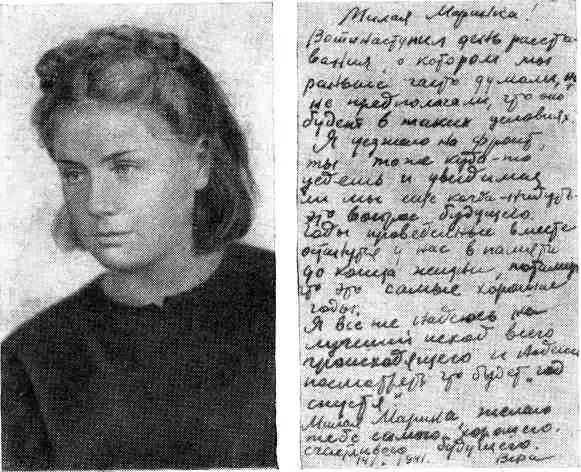 Милая Маринка!
Вот и наступил день расста-
вания, о котором мы
раньше часто думали, но
не предполагали, что оно
будет в таких условиях.
Я уезжаю на фронт,
ты тоже куда-то
уедешь и увидимся
ли мы еще когда-нибудь-
это вопрос будущего.
Годы, проведенные вместе
останутся у нас в памяти
до конца жизни, потому
что это самые хорошие
годы.
Я все же надеюсь на
лучший исход всего
происходящего и
посмотреть что будет "год
спустя"
Милая Марина желаю
тебе самого хорошего.
счастливого будущего.
1941. Вера